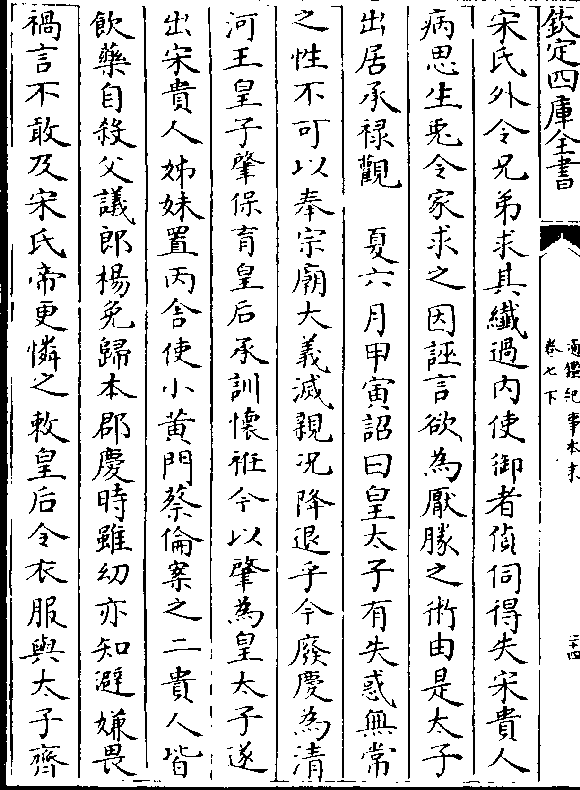 欽定四庫全書
通鑑紀事本末
卷七下
二十四
宋氏外令兄弟求其纖過内使御者偵伺得失宋貴人
病思生兎令家求之因誣言欲為厭勝之術由是太子
出居承禄觀　夏六月甲寅詔曰皇太子有失惑無常
之性不可以奉宗廟大義滅親况降退乎今廢慶為清
河王皇子肇保育皇后承訓懷袵今以肇為皇太子遂
出宋貴人姊妹置丙舍使小黄門蔡倫案之二貴人皆
飲藥自殺父議郎楊免歸本郡慶時雖幼亦知避嫌畏
禍言不敢及宋氏帝更憐之敕皇后令衣服與太子齊